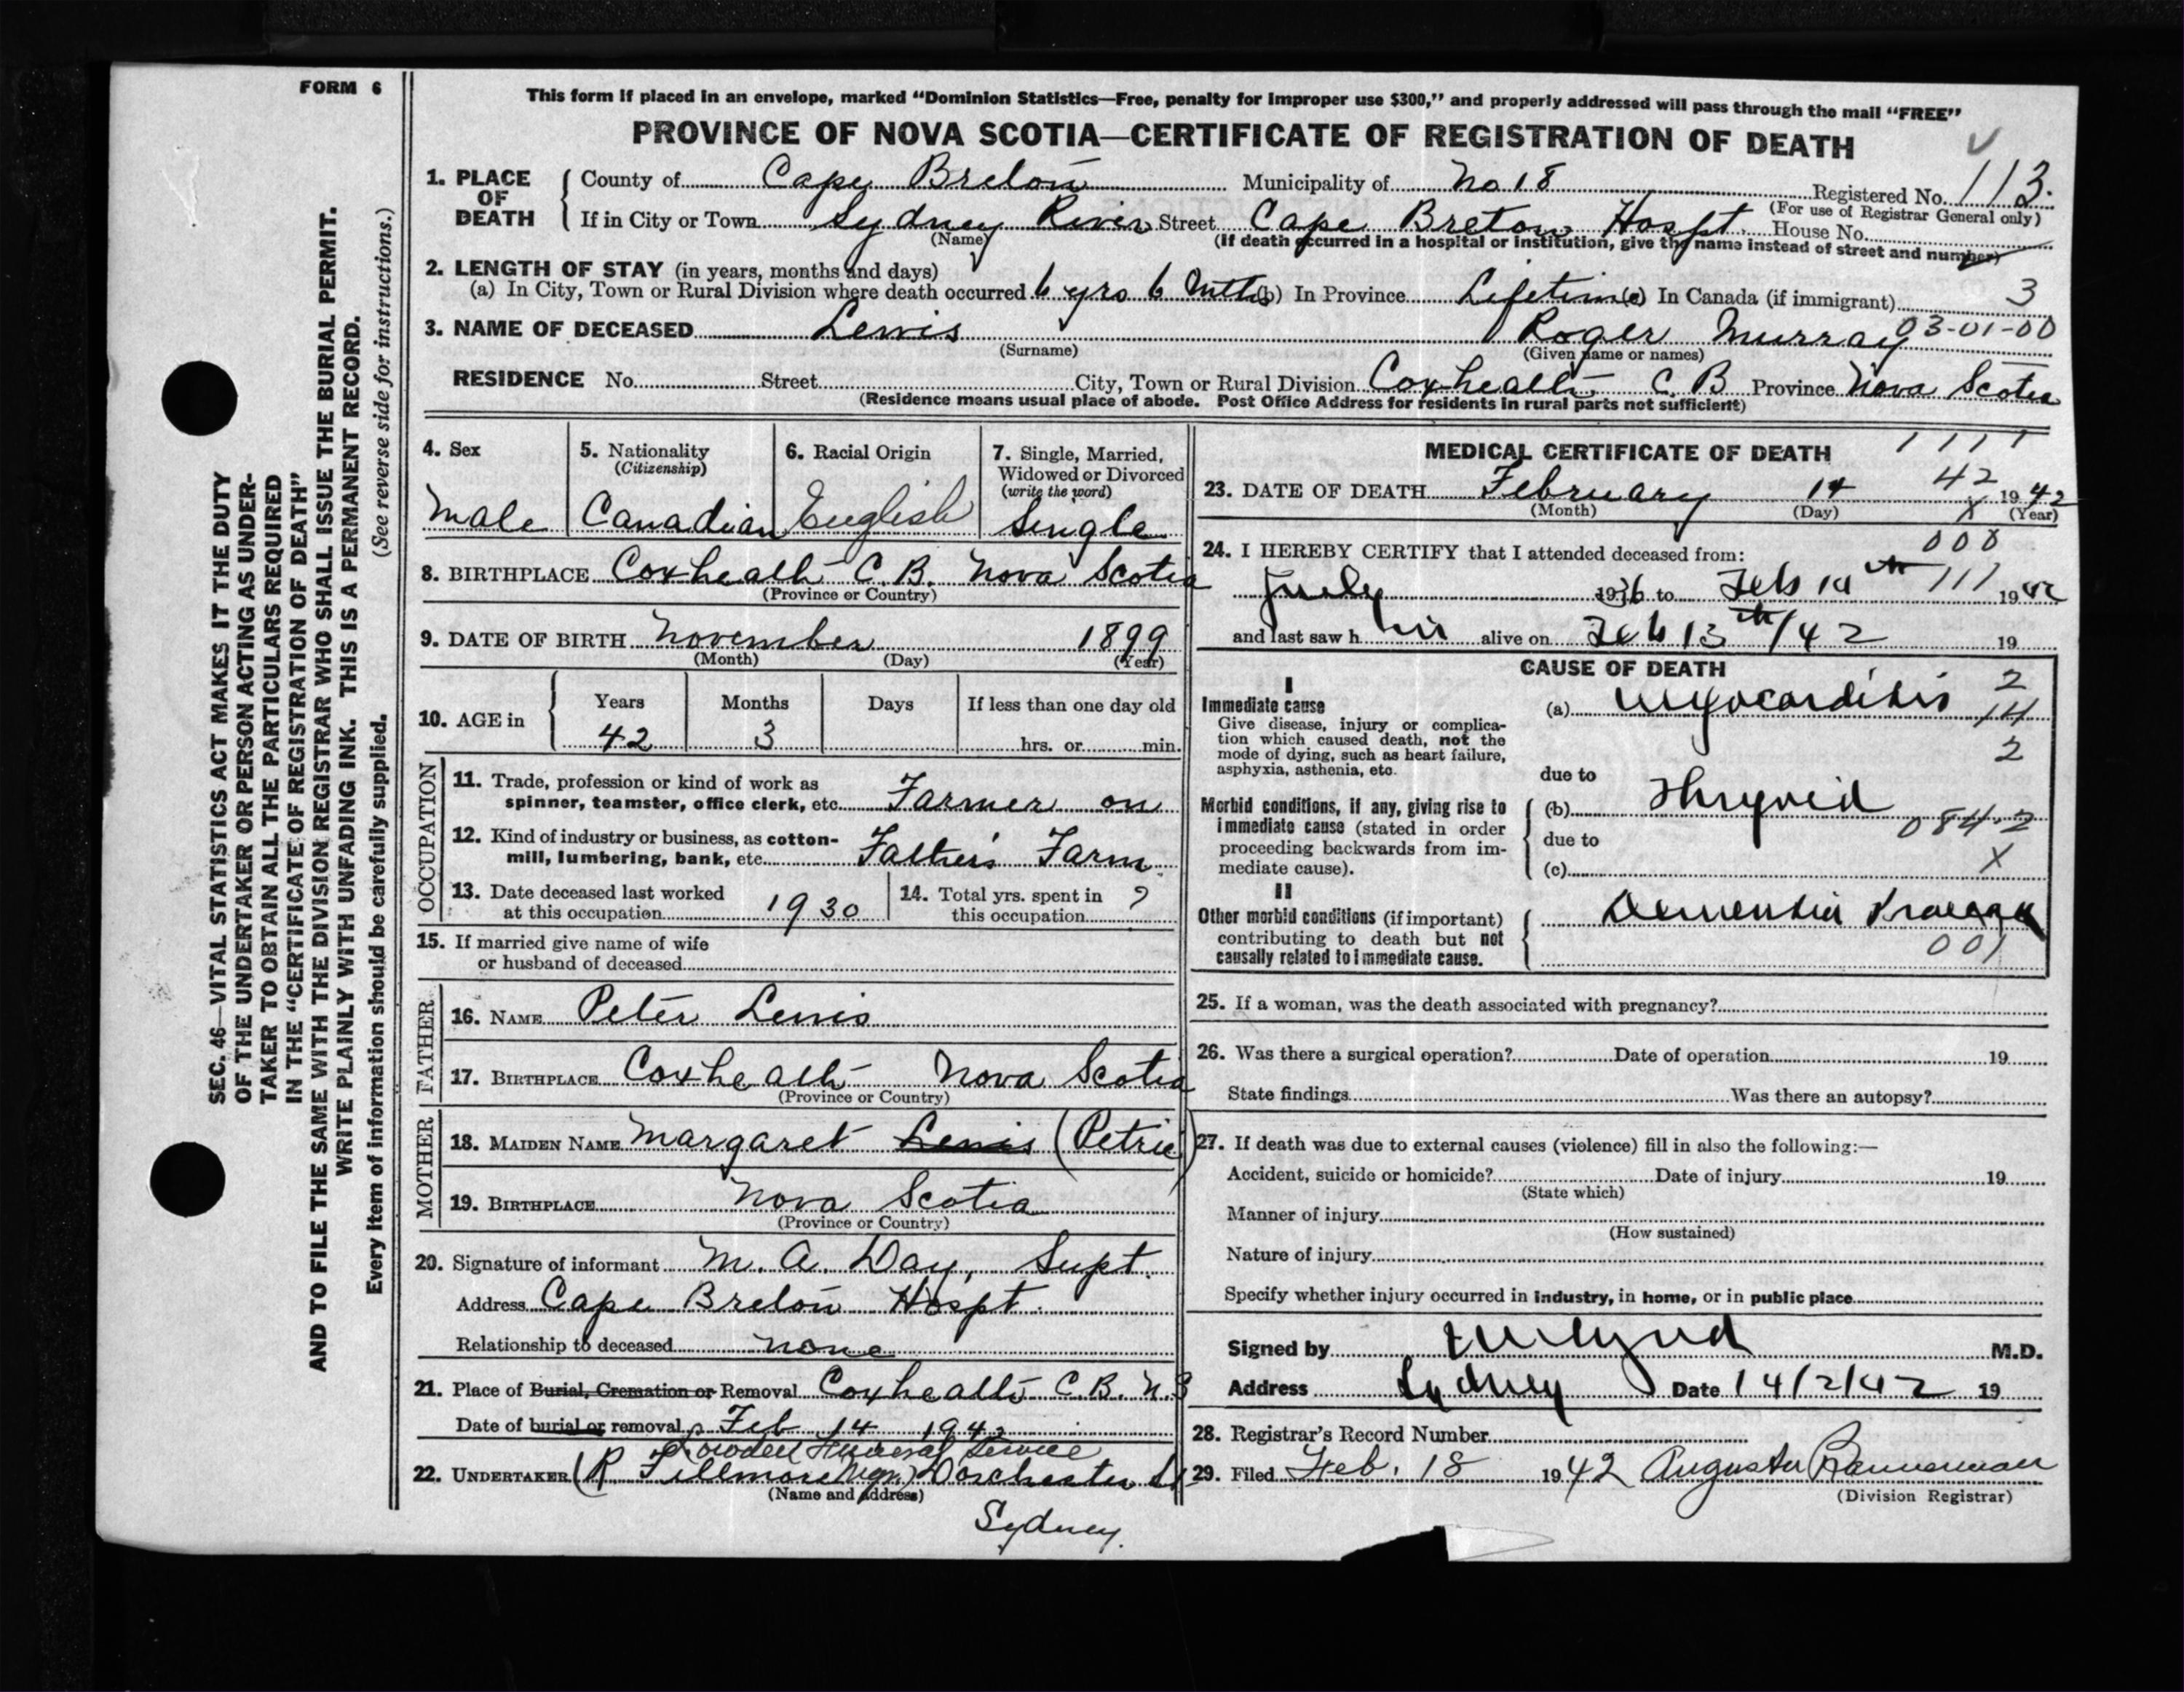 FORM 6
This form if placed in an envelope, marked “Dominion Statistics—Free, penalty for improper use $300,” and properly addressed will pass through the mail “FREE”
PROVINCE OF NOVA SCOTIA—CERTIFICATE OF REGISTRATION OF DEATH
1. PLACE OF DEATH
County of Cape Breton Municipality of No 18 Registered No. 113.
(For use of Registrar General only)
If in City or Town Sydney River Street Cape Breton Hospt. House No.
(Name) (If death occurred in a hospital or institution, give the name instead of street and number)
2. LENGTH OF STAY (in years, months and days)
(a) In City, Town or Rural Division where death occurred 6 yrs 6 Mths (b) In Province Lifetime (c) In Canada (if immigrant) 3
3. NAME OF DECEASED Lewis Roger Murray 03-01-00
(Surname) (Given name or names)
RESIDENCE No. Street City, Town or Rural Division Coxheath C. B Province Nova Scotia
(Residence means usual place of abode. Post Office Address for residents in rural parts not sufficient)
4. Sex
Male
5. Nationality
(Citizenship)
Canadian
6. Racial Origin
English
7. Single, Married,
Widowed or Divorced
(write the word)
Single
8. BIRTHPLACE Coxheath C.B. Nova Scotia
(Province or Country)
9. DATE OF BIRTH November 1899
(Month) (Day) (Year)
10. AGE in
Years Months Days If less than one day old
42 3 hrs. or min.
OCCUPATION
11. Trade, profession or kind of work as
spinner, teamster, office clerk, etc. Farmer on
12. Kind of industry or business, as cotton-
mill, lumbering, bank, etc. Father's Farm
13. Date deceased last worked
at this occupation 1930
14. Total yrs. spent in
this occupation ?
15. If married give name of wife
or husband of deceased
FATHER
16. NAME Peter Lewis
17. BIRTHPLACE Coxheath Nova Scotia
(Province or Country)
MOTHER
18. MAIDEN NAME Margaret Lewis (Petrie)
19. BIRTHPLACE Nova Scotia
(Province or Country)
20. Signature of informant M. A. Day, Supt.
Address Cape Breton Hospt.
Relationship to deceased none
21. Place of Burial, Cremation or Removal Coxheath C.B. N.S
Date of burial or removal Feb 14 1942
Funeral Service
22. UNDERTAKER (R Fillmore Mgr.) Dorchester St
(Name and address)
Sydney.
MEDICAL CERTIFICATE OF DEATH 1111
42
23. DATE OF DEATH February 14 1942
(Month) (Day) X (Year)
24. I HEREBY CERTIFY that I attended deceased from: 000
July 1936 to Feb 14th 111 1942
and last saw him alive on Feb 13th/42 19
CAUSE OF DEATH
I
Immediate cause
Give disease, injury or complica-
tion which caused death, not the
mode of dying, such as heart failure,
asphyxia, asthenia, etc.
(a) Myocarditis 2
14
2
due to
Morbid conditions, if any, giving rise to
immediate cause (stated in order
proceeding backwards from im-
mediate cause).
(b) Thyroid
084.2
due to
X
(c)
II
Other morbid conditions (if important)
contributing to death but not
causally related to immediate cause.
Dementia Praecox
001
25. If a woman, was the death associated with pregnancy?
26. Was there a surgical operation? Date of operation 19
State findings Was there an autopsy?
27. If death was due to external causes (violence) fill in also the following:—
Accident, suicide or homicide? Date of injury 19
(State which)
Manner of injury
(How sustained)
Nature of injury
Specify whether injury occurred in industry, in home, or in public place
Signed by M.D.
Address Sydney Date 14/2/42 19
28. Registrar's Record Number
29. Filed Feb. 18 1942 Augusta Bannerman
(Division Registrar)
SEC. 46—VITAL STATISTICS ACT MAKES IT THE DUTY
OF THE UNDERTAKER OR PERSON ACTING AS UNDER-
TAKER TO OBTAIN ALL THE PARTICULARS REQUIRED
IN THE “CERTIFICATE OF REGISTRATION OF DEATH”
AND TO FILE THE SAME WITH THE DIVISION REGISTRAR WHO SHALL ISSUE THE BURIAL PERMIT.
WRITE PLAINLY WITH UNFADING INK. THIS IS A PERMANENT RECORD.
Every item of information should be carefully supplied. (See reverse side for instructions.)